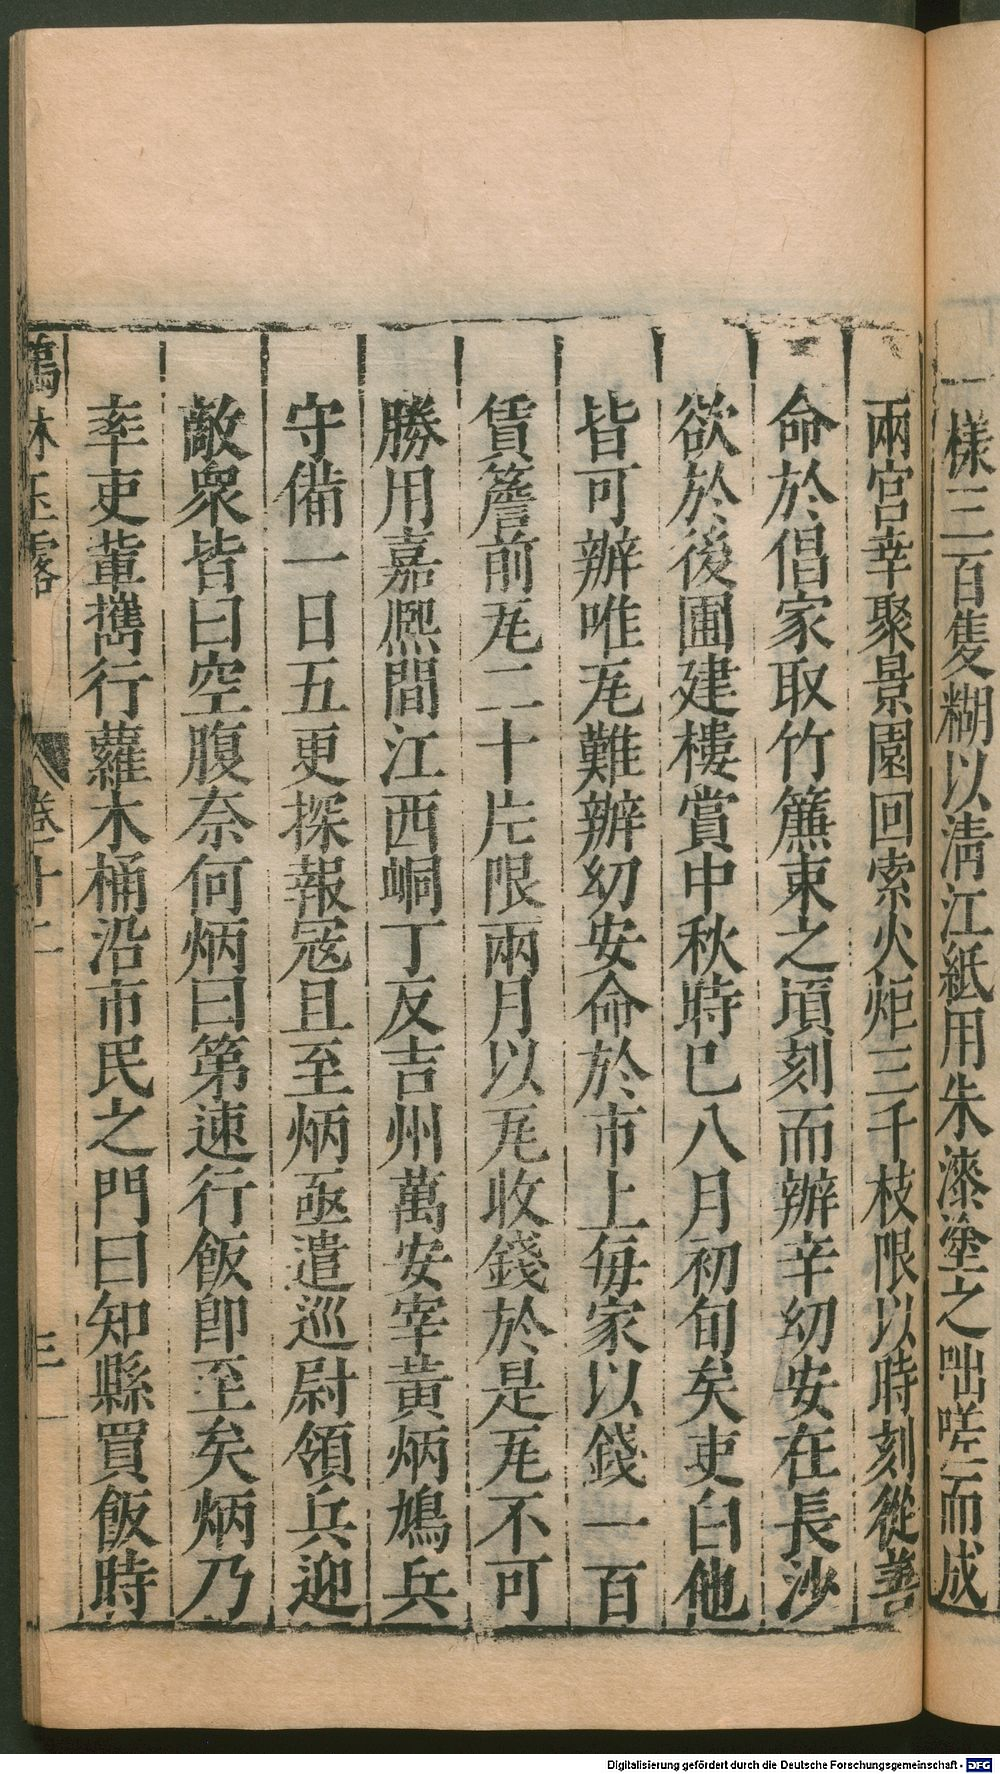 一樣三百隻糊以淸江紙用朱漆塗之咄嗟而成
兩宮幸聚景園回索火炬三千枝限以時刻從善
命於倡家取竹簾束之頃刻而辦辛幼安在長沙
欲於後圃建樓賞中秋時已八月初旬矣吏白他
皆可辦唯瓦難辦幼安命於市上每家以錢一百
賃簷前瓦二十片限兩月以瓦收錢於是瓦不可
勝用嘉熙間江西峒丁反吉州萬安宰黃炳鳩兵
守備一日五更探報寇且至炳亟遣巡尉領兵迎
敵衆皆曰空腹奈何炳曰第速行飯即至矣炳乃
率吏輩攜行籮木桶沿市民之門曰知縣買飯時
鶴林玉露 卷十二 三
Digitalisierung gefördert durch die Deutsche Forschungsgemeinschaft - DFG